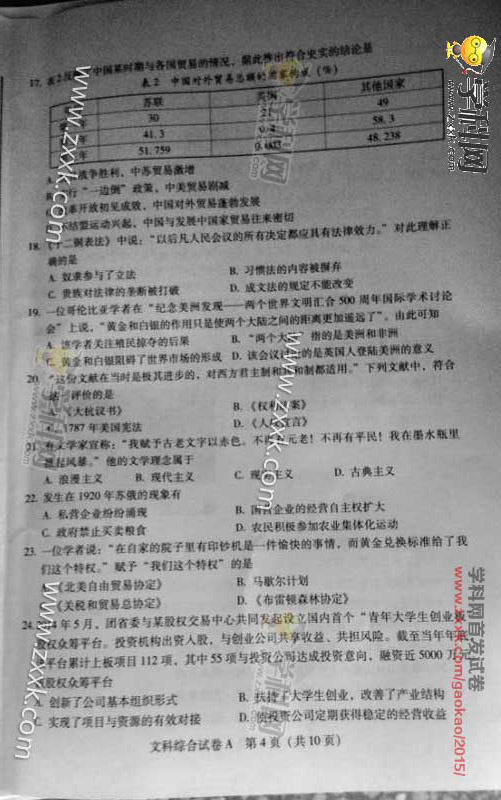 17. 表2反 中国某时期与各国贸易的情况，据此推出符合史实的结论是
表2 中国对外贸易总额的国家构成（%）
苏联 美国 其他国家
年 30 49
年 41.3 0.4 58.3
年 51.759 0.003 48.238
战争胜利，中苏贸易激增
行“一边倒”政策，中美贸易剧减
革开放初见成效，中国对外贸易蓬勃发展
不结盟运动兴起，中国与发展中国家贸易往来密切
18.《十二铜表法》中说：“以后凡人民会议的所有决定都应具有法律效力。”对此理解正
确的是
A. 奴隶参与了立法 B. 习惯法的内容被摒弃
C. 贵族对法律的垄断被打破 D. 成文法的规定不能改变
19. 一位哥伦比亚学者在“纪念美洲发现——两个世界文明汇合500周年国际学术讨论
会”上说，“黄金和白银的作用只是使两个大陆之间的距离更加遥远了”。由此可知
A. 该学者关注殖民掠夺的后果 B. “两个大 ”指的是美洲和非洲
C. 黄金和白银阻碍了世界市场的形成 D. 该会议 的是英国人登陆美洲的意义
20. “这份文献在当时是极其进步的，对西方君主制和 和制都适用。”下列文献中，符合
这 评价的是
A.《大抗议书》 B.《权利 案》
1787年美国宪法 D.《人 宣言》
21. 有文学家宣称：“我赋予古老文字以赤色，不再 元老！不再有平民！我在墨水瓶里
掀起风暴。”他的文学理念属于
A. 浪漫主义 B. 现代主义 C. 现 主义 D. 古典主义
22. 发生在1920年苏俄的现象有
A. 私营企业纷纷涌现 B. 国有企业的经营自主权扩大
C. 政府禁止买卖粮食 D. 农民积极参加农业集体化运动
23. 一位学者说：“在自家的院子里有印钞机是一件愉快的事情，而黄金兑换标准给了我
们这个特权。”赋予“我们这个特权”的是
《北美自由贸易协定》 B. 马歇尔计划
《关税和贸易总协定》 D.《布雷顿森林协定》
24. 4年5月，团省委与某股权交易中心共同发起设立国内首个“青年大学生创业板
股权众筹平台。投资机构出资人股，与创业公司共享收益、共担风险。截至当年年底
平台累计上板项目112项，其中55项与投资公司达成投资意向，融资近5000万
股权众筹平台
A. 创新了公司基本组织形式 B. 扶持了大学生创业，改善了产业结构
实现了项目与资源的有效对接 D. 使投资公司定期获得稳定的经营收益
文科综合试卷A 第4页（共10页）
www.zxxk.com
学科网
www.zxxk.com
学科网
www.zxxk.com
www.zxxk.com
学科网首发试卷
gaokao/2015/